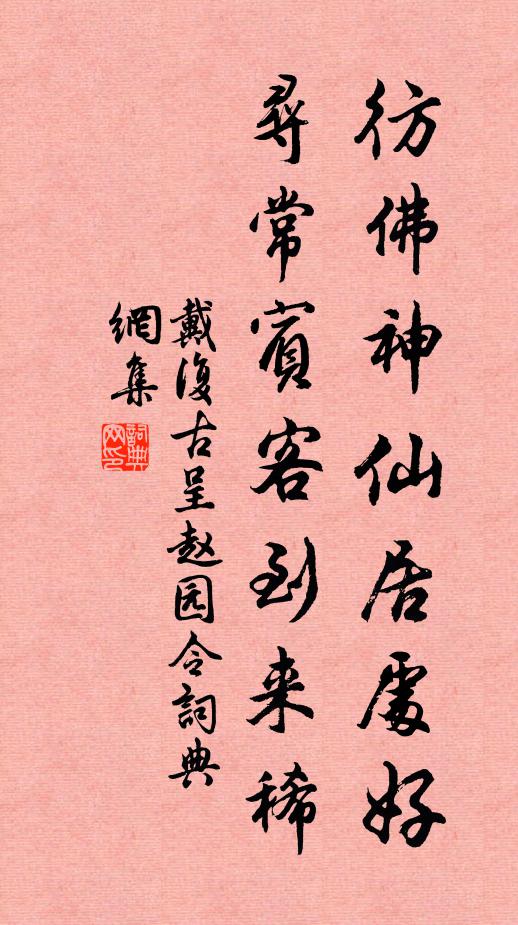 彷佛神仙居處好
尋常賓客到来稀
戴復古呈赵园令詞典
網集
詞典
网印